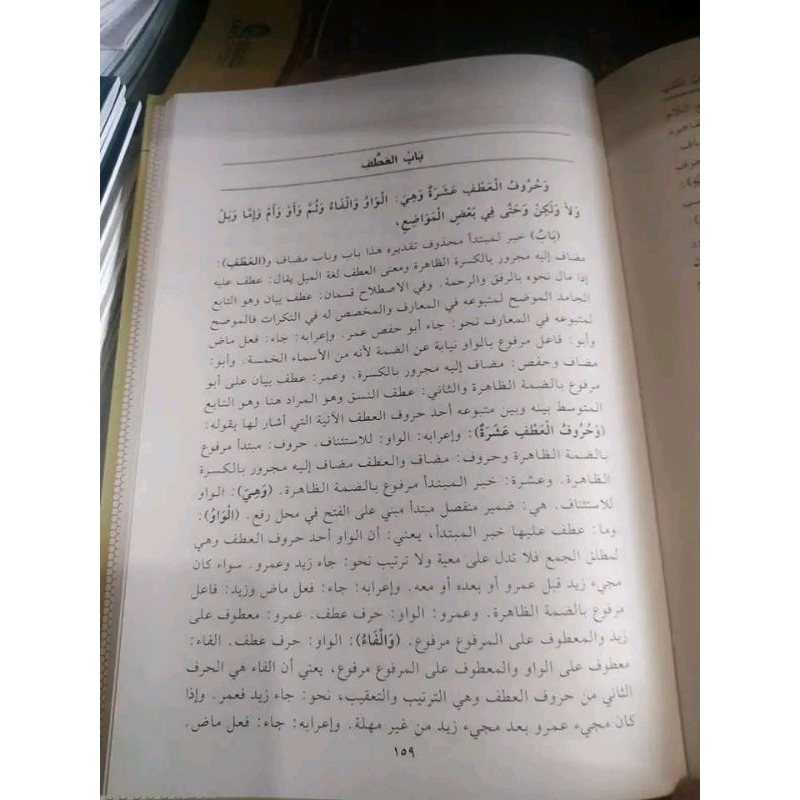 بَابُ العَطْفِ
وَحُرُوفُ الْعَطْفِ عَشَرَةٌ وَهِيَ: الْوَاوُ وَالْفَاءُ وَثُمَّ وَأَوْ وَأَمْ وَإِمَّا وَبَلْ
وَلاَ وَلَكِنْ وَحَتَّى فِي بَعْضِ الْمَوَاضِعِ،
(بَابُ) خبر لمبتدأ محذوف تقديره هذا باب وباب مضاف و(العَطْفِ):
مضاف إليه مجرور بالكسرة الظاهرة ومعنى العطف لغة الميل يقال: عطف عليه
إذا مال نحوه بالرفق والرحمة. وفي الاصطلاح قسمان: عطف بيان وهو التابع
الجامد الموضح لمتبوعه في المعارف والمخصص له في النكرات فالموضح
لمتبوعه في المعارف نحو: جاء أبو حفص عمر. وإعرابه: جاء: فعل ماض
وأبو: فاعل مرفوع بالواو نيابة عن الضمة لأنه من الأسماء الخمسة. وأبو:
مضاف وحفص: مضاف إليه مجرور بالكسرة. وعمر: عطف بيان على أبو
مرفوع بالضمة الظاهرة والثاني: عطف النسق وهو المراد هنا وهو التابع
المتوسط بينه وبين متبوعه أحد حروف العطف الآتية التي أشار لها بقوله:
(وَحُرُوفُ الْعَطْفِ عَشَرَةٌ): وإعرابه: الواو: للاستئناف. حروف: مبتدأ مرفوع
بالضمة الظاهرة وحروف: مضاف والعطف مضاف إليه مجرور بالكسرة
الظاهرة. وعشرة: خبر المبتدأ مرفوع بالضمة الظاهرة. (وَهِيَ): الواو
للاستئناف. هي: ضمير منفصل مبتدأ مبني على الفتح في محل رفع. (الْوَاوُ):
وما: عطف عليها خبر المبتدأ، يعني: أن الواو أحد حروف العطف وهي
لمطلق الجمع فلا تدل على معية ولا ترتيب نحو: جاء زيد وعمرو. سواء كان
مجيء زيد قبل عمرو أو بعده أو معه. وإعرابه: جاء: فعل ماض وزيد: فاعل
مرفوع بالضمة الظاهرة. وعمرو: الواو: حرف عطف. عمرو: معطوف على
زيد والمعطوف على المرفوع مرفوع. (وَالْفَاءُ): الواو: حرف عطف. الفاء:
معطوف على الواو والمعطوف على المرفوع مرفوع، يعني أن الفاء هي الحرف
الثاني من حروف العطف وهي الترتيب والتعقيب، نحو: جاء زيد فعمر. وإذا
كان مجيء عمرو بعد مجيء زيد من غير مهلة. وإعرابه: جاء: فعل ماض.
١٥٩